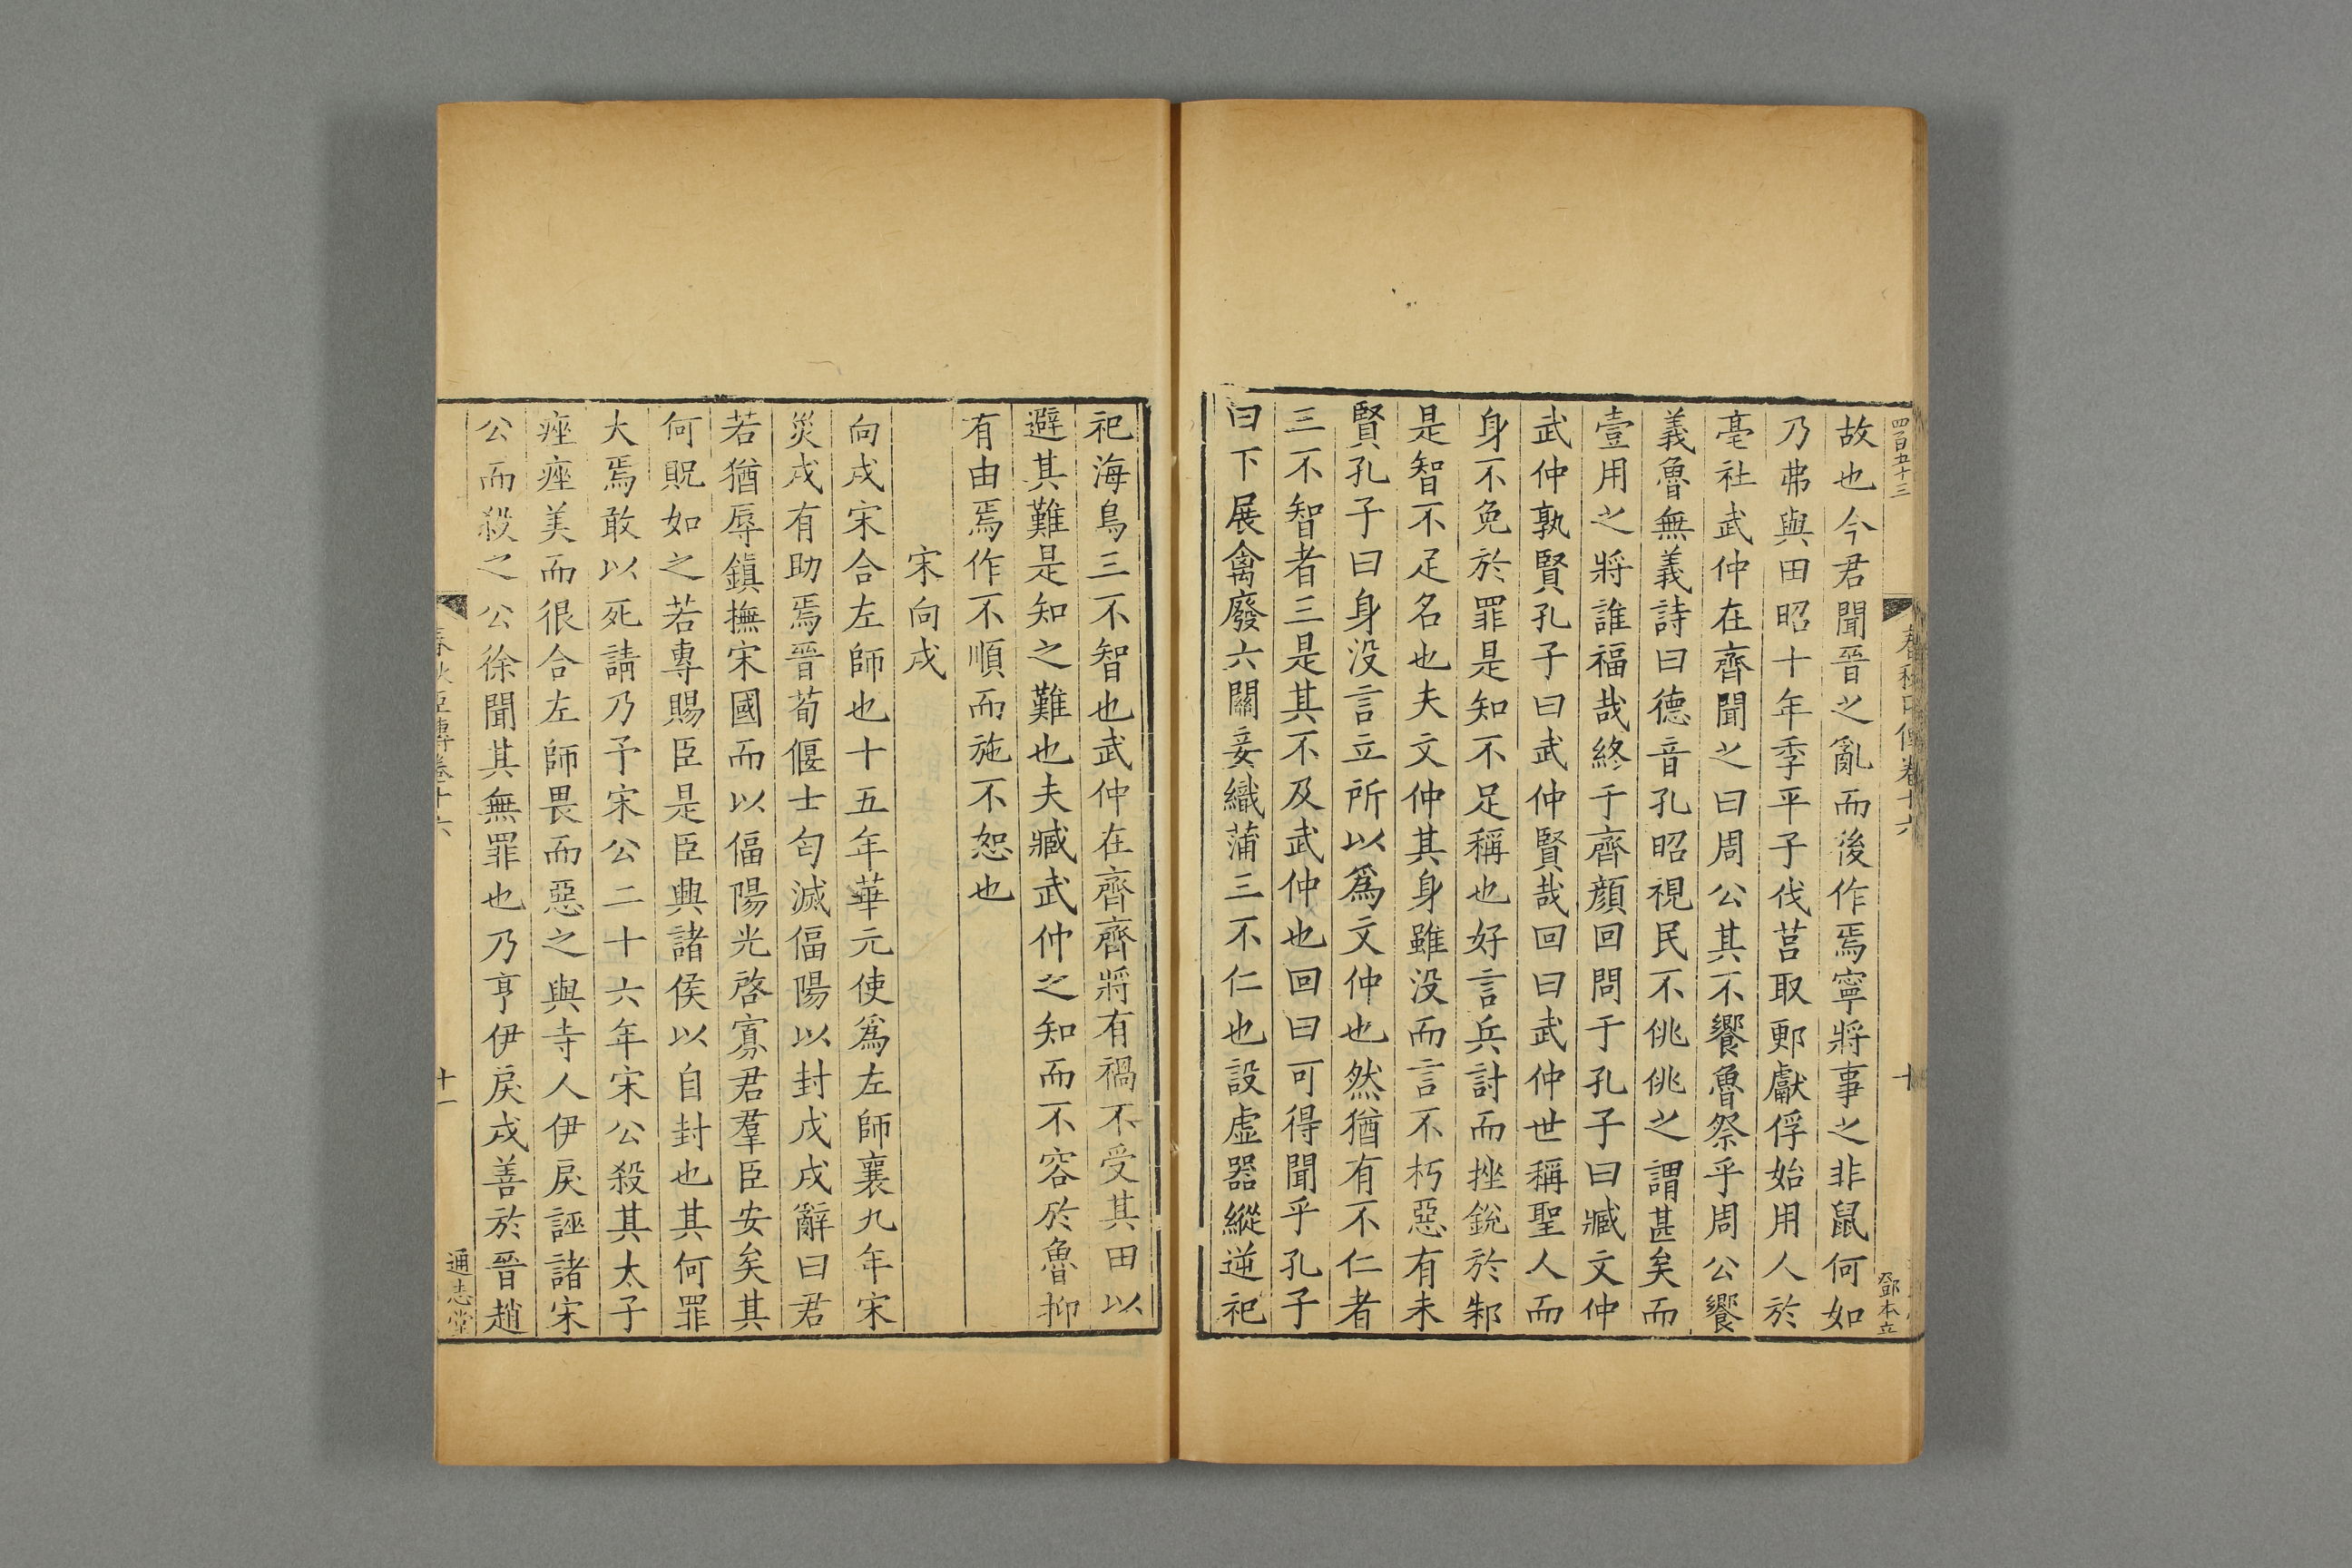 四百五十三
春秋臣傳卷十六
十
鄧本立
故也今君聞晉之亂而後作焉寧將事之非鼠何如
乃弗與田昭十年季平子伐莒取郠獻俘始用人於
亳社武仲在齊聞之曰周公其不饗魯祭乎周公饗
義魯無義詩曰德音孔昭視民不佻佻之謂甚矣而
壹用之將誰福哉終于齊顏回問于孔子曰臧文仲
武仲孰賢孔子曰武仲賢哉回曰武仲世稱聖人而
身不免於罪是知不足稱也好言兵討而挫銳於邾
是智不足名也夫文仲其身雖没而言不朽惡有未
賢孔子曰身没言立所以爲文仲也然猶有不仁者
三不智者三是其不及武仲也回曰可得聞乎孔子
曰下展禽廢六關妾織蒲三不仁也設虛器縱逆祀
祀海鳥三不智也武仲在齊齊將有禍不受其田以
避其難是知之難也夫臧武仲之知而不容於魯抑
有由焉作不順而施不恕也
宋向戌
向戌宋合左師也十五年華元使爲左師襄九年宋
災戌有助焉晉荀偃士匄滅偪陽以封戌戌辭曰君
若猶辱鎮撫宋國而以偪陽光啓寡君羣臣安矣其
何貺如之若專賜臣是臣興諸侯以自封也其何罪
大焉敢以死請乃予宋公二十六年宋公殺其太子
痤痤美而很合左師畏而惡之與寺人伊戾誣諸宋
公而殺之公徐聞其無罪也乃亨伊戾戌善於晉趙
春秋臣傳卷十六
十一
通志堂